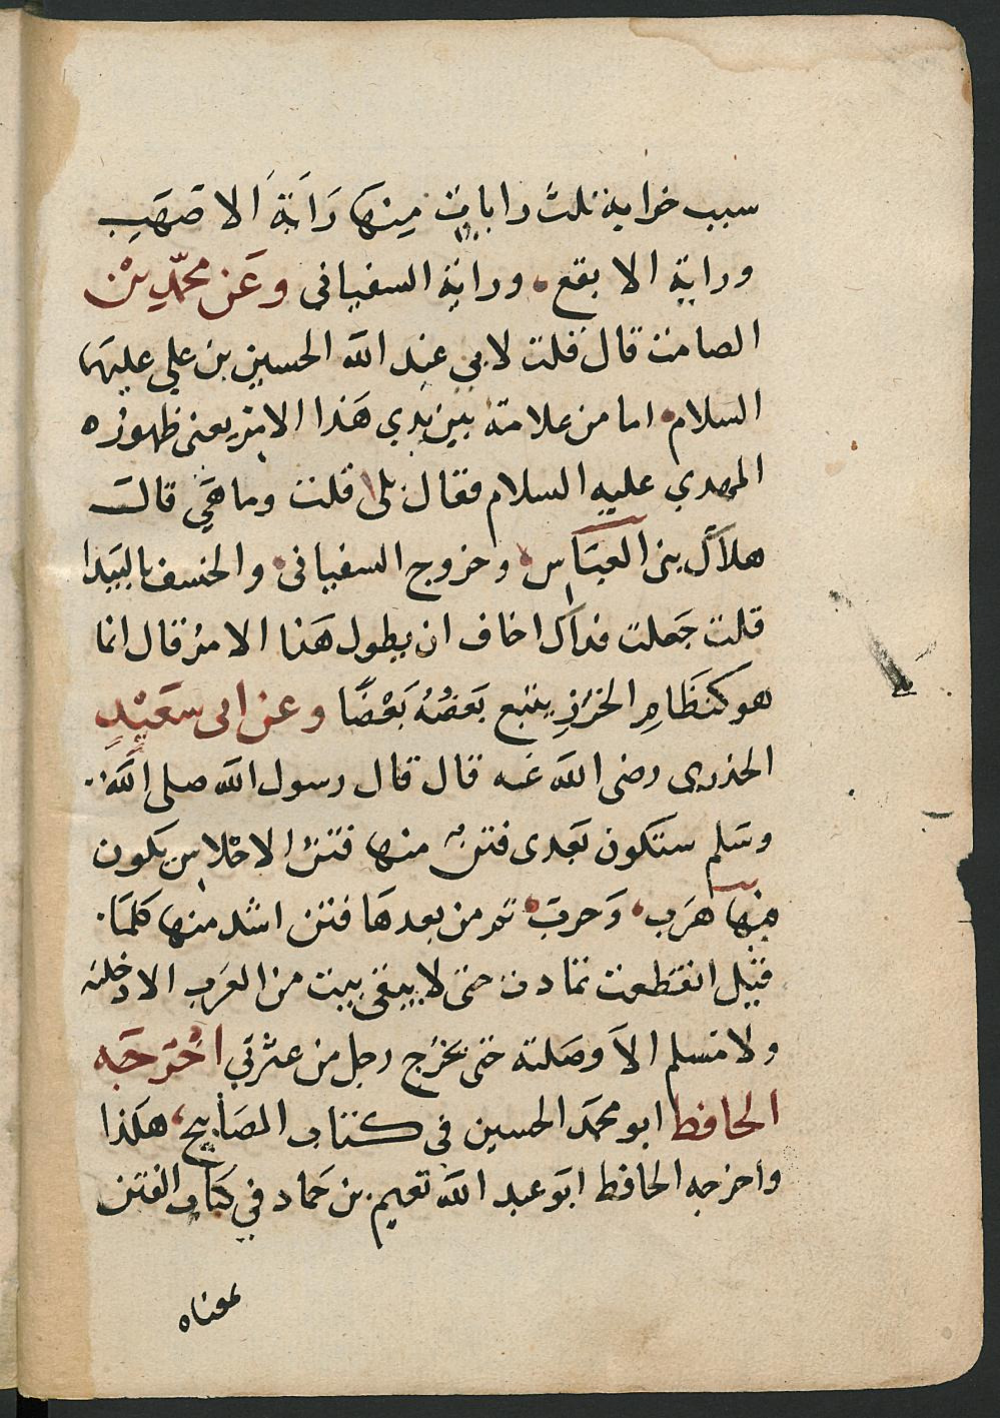 سبب خرابه ثلث رايات منها راية الاصهب
وراية الابقع وراية السفيانى وعن محمد بن
الصامت قال قلت لابى عبد الله الحسين بن علي عليهما
السلام اما من علامة بين يدي هذا الامر يعنى ظهوره
المهدي عليه السلام فقال بلى قلت وما هي قال
هلاك بنى العباس وخروج السفيانى والخسف بالبيدا
قلت جعلت فداك اخاف ان يطول هذا الامر قال انما
هو كنظام الخرز يتبع بعضه بعضا وعن ابى سعيد
الخدرى رضى الله عنه قال قال رسول الله صلى الله
وسلم ستكون بعدى فتن منها فتن الاحلاس يكون
فيها هرب وحرب ثم من بعدها فتن اشد منها كلما
قيل انقطعت تمادت حتى لا يبقى بيت من العرب الا دخلته
ولا مسلم الا وصلته حتى يخرج رجل من عترتي اخرجه
الحافظ ابو محمد الحسين في كتاب المصابيح هكذا
واخرجه الحافظ ابو عبد الله نعيم بن حماد في كتاب الفتن
بمعناه